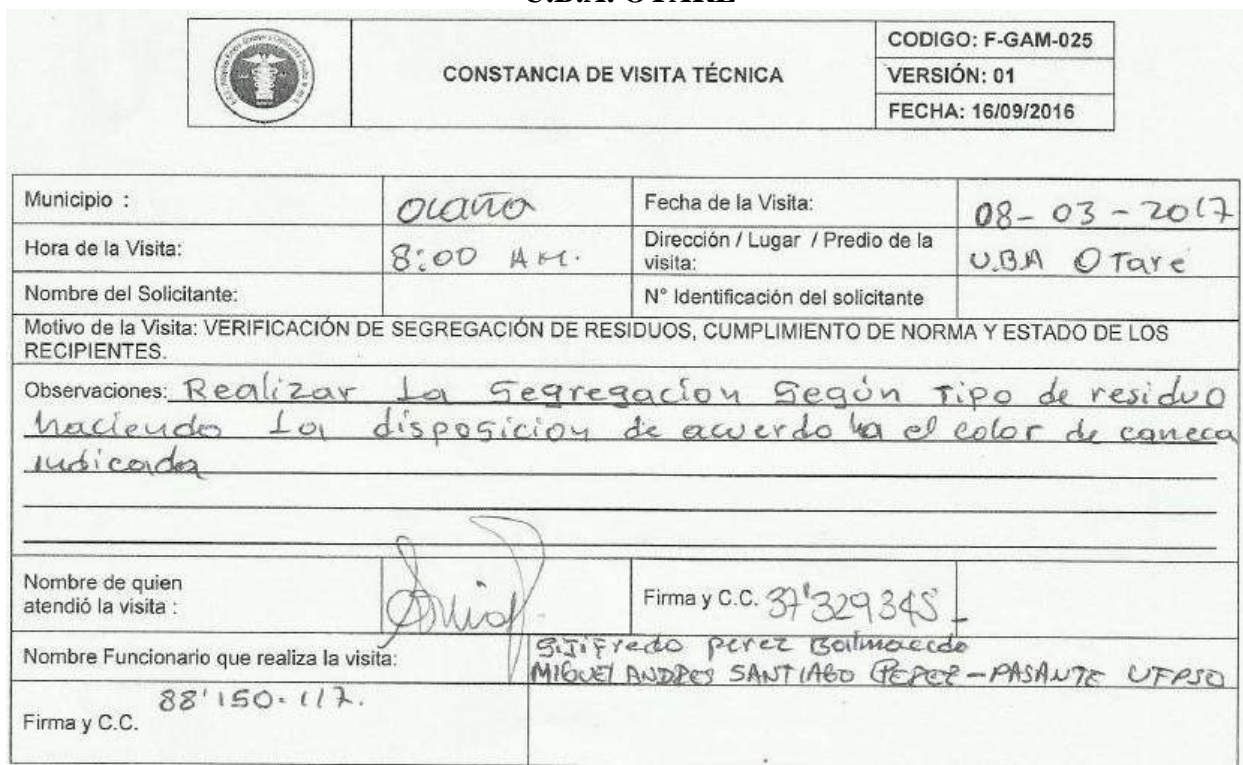 U.B.A. OTARE
CONSTANCIA DE VISITA TÉCNICA
CODIGO: F-GAM-025
VERSIÓN: 01
FECHA: 16/09/2016
Municipio : Ocaña
Fecha de la Visita: 08-03-2017
Hora de la Visita: 8:00 AM.
Dirección / Lugar / Predio de la
visita: U.BA OTare
Nombre del Solicitante:
N° Identificación del solicitante
Motivo de la Visita: VERIFICACIÓN DE SEGREGACIÓN DE RESIDUOS, CUMPLIMIENTO DE NORMA Y ESTADO DE LOS
RECIPIENTES.
Observaciones: Realizar la segregacion según Tipo de residuo
haciendo la disposicion de acuerdo ha el color de caneca
indicada
Nombre de quien
atendió la visita :
Firma y C.C. 37'329345
Nombre Funcionario que realiza la visita: perez
MIGUEL ANDRES SANTIAGO - PASANTE UFPSO
88'150.117.
Firma y C.C.